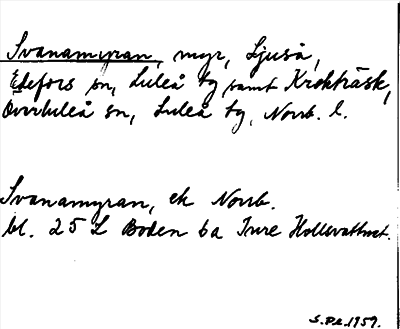 Svanamyran, myr, Ljuså,
Edefors sn, Luleå tg samt Krokträsk,
Överluleå sn, Luleå tg, Norrb. l.
Svanamyran, ek Norrb.
bl. 25 L Boden 6a Inre Hollsvattnet.
S.Pe.1959.